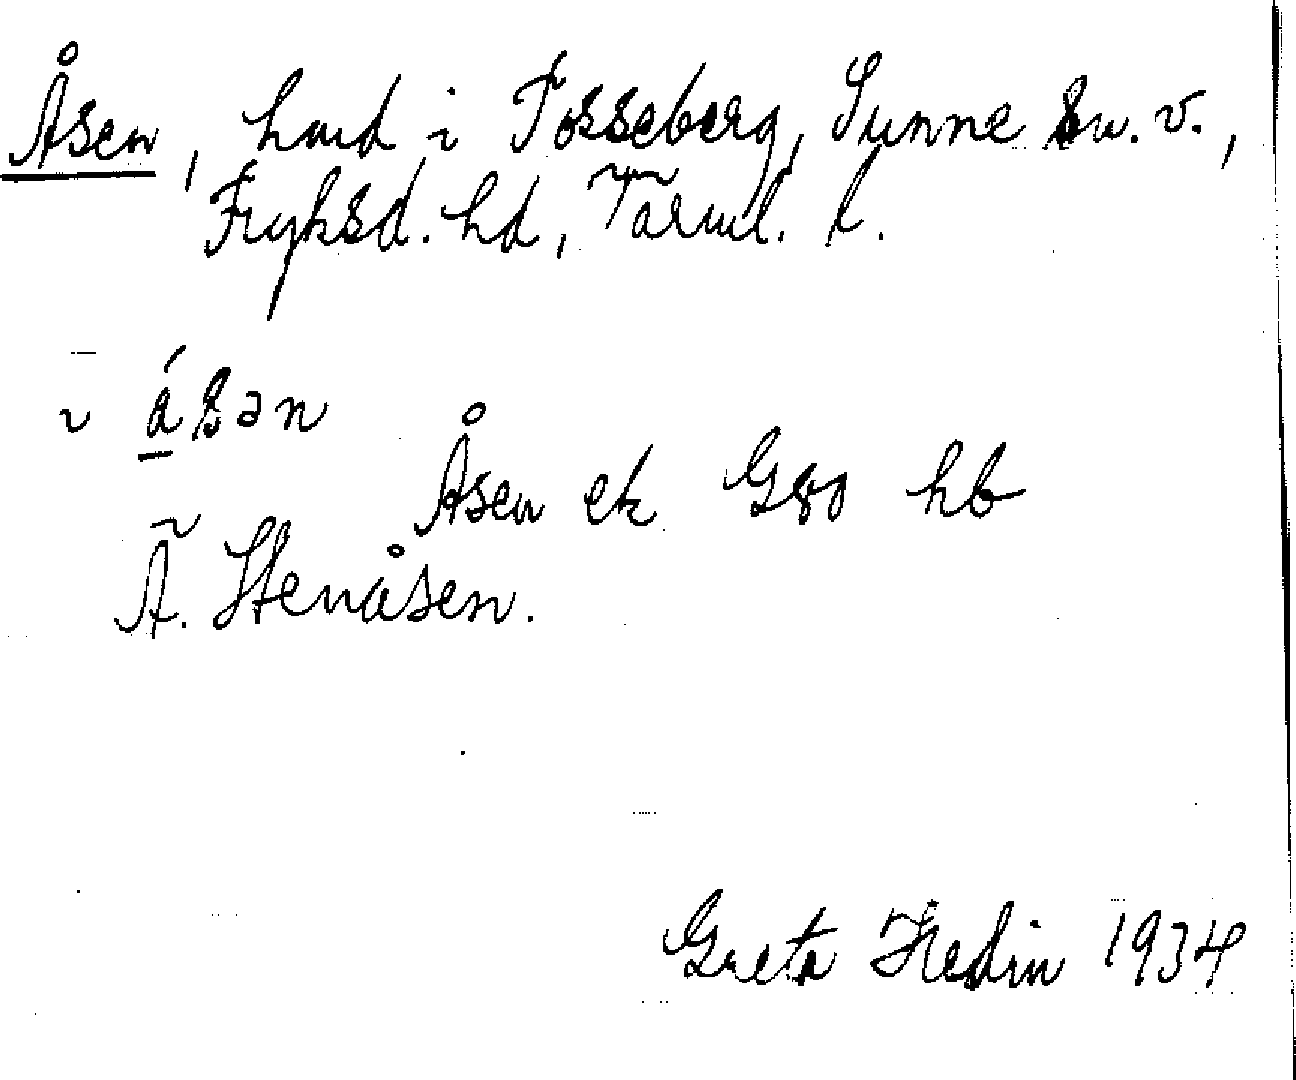 Åsen, hmd i Tosseberg, Sunne sn. v.,
Fryksd. hd, Värml. l.
i åsən
Åsen ek G80 hb
Ä. Stenåsen.
Greta Hedin 1934